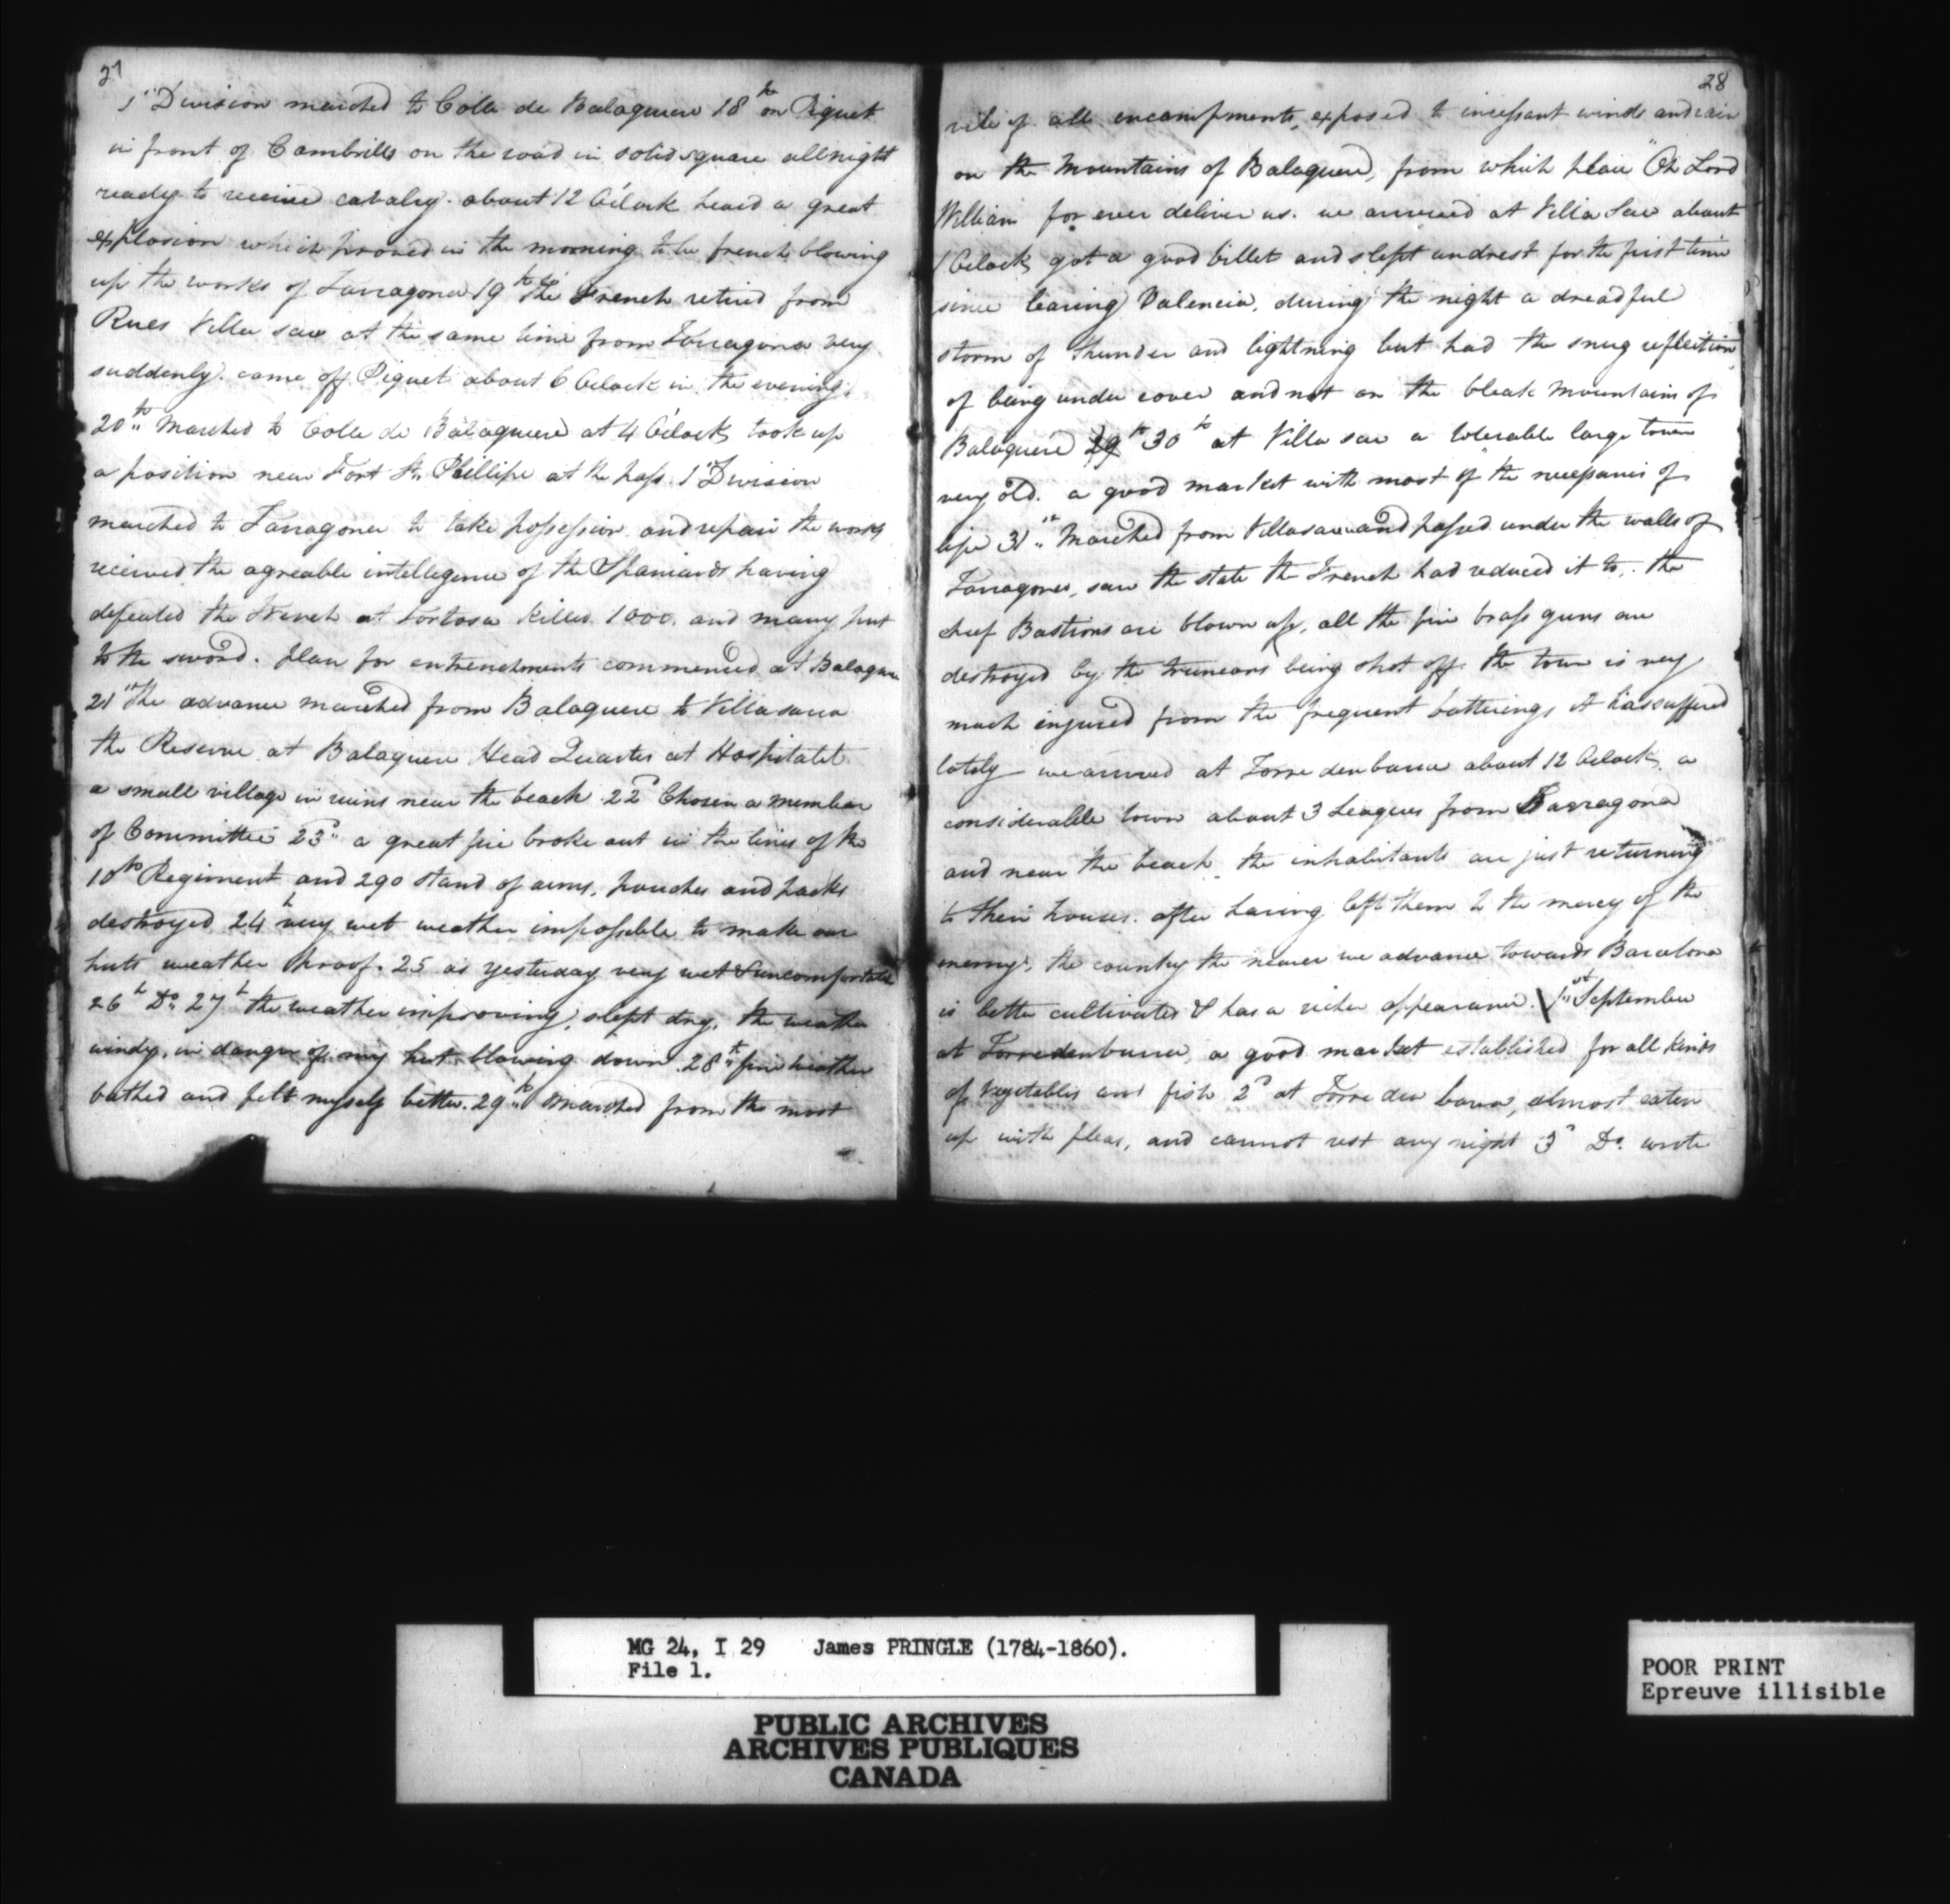 27
1st Division marched to Colla de Balaguere 18th on Piquet
in front of Cambrills on the road in solid square all night
ready to receive cavalry. about 12 OClock heard a great
explosion which proved in the morning to be french blowing
up the works of Tarragona 19th the French retired from
Rues Villa sau at the same time from Tarragona very
suddenly. came off Piquet about 6 OClock in the evening.
20th Marched to Colla de Balaguere at 4 OClock took up
a position near Fort St. Phillipe at the pass. 1st Division
marched to Tarragona to take possession and repair the works
received the agreable intellegence of the Spaniards having
defeated the French at Tortosa killed 1000. and many put
to the sword. plan for entrenchments commenced at Balaguere
21st The advance marched from Balaguere to Villasaua
the Reserve at Balaguere Head Quarters at Hospitalet
a small village in ruins near the beach. 22d Chosen a member
of Committee 23d a great fire broke out in the lines of the
10th Regiment and 290 stand of arms, pouches and packs
destroyed 24th very wet weather impossible to make our
huts weather proof. 25 as yesterday very wet & uncomfortable
26th Do. 27th the weather improving, slept dry, the weather
windy, in danger of my hut blowing down. 28th fine weather
bathed and felt myself better. 29th Marched from the most
28
vile of all encampments, exposed to incessant winds and rain
on the Mountains of Balaguere, from which place "Oh Lord
William for ever deliver us. we arrived at Villa Sau about
1 OClock got a good billet and slept undrest for the first time
since leaving Valencia, during the night a dreadful
storm of thunder and lightning but had the snug reflection
of being under cover and not on the bleak mountains of
Balaguere 29th 30th at Villa sau a tolerable large town
very old. a good market with most of the necessaries of
life 31st Marched from Villasau and passed under the walls of
Tarragona, saw the state the French had reduced it to. the
chief Bastions are blown up, all the fine brass guns are
destroyed by the truncons being shot off. the town is very
much injured from the frequent batterings it has suffered
lately we arrived at Torre denbarra about 12 OClock, a
considerable town about 3 Leagues from Tarragona
and near the beach. the inhabitants are just returning
to their houses. after having left them to the mercy of the
enemy. the country the nearer we advance towards Barcelona
is better cultivated & has a richer appearance. \ 1st September
at Torredenburra, a good market established for all kinds
of vegetables and fish 2d at Torre den barra, almost eaten
up with fleas, and cannot rest any night 3d Do. wrote
MG 24, I 29 James PRINGLE (1784-1860).
File 1.
PUBLIC ARCHIVES
ARCHIVES PUBLIQUES
CANADA
POOR PRINT
Epreuve illisible